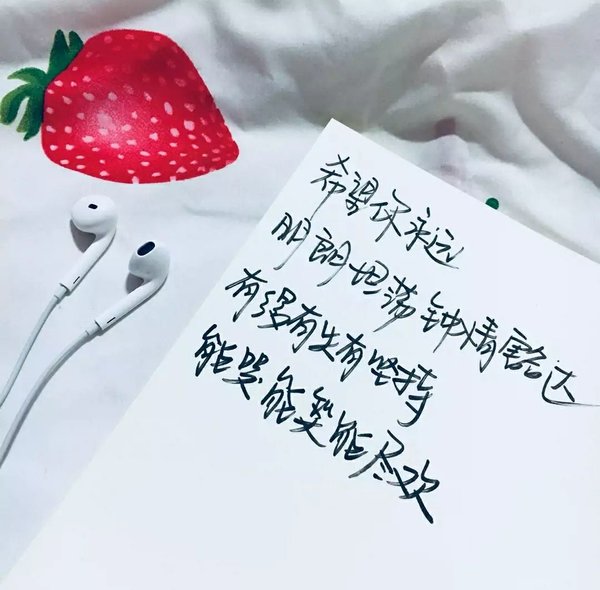 希望你永远
明朗坦荡钟情豁达
有得有失有坚持
能哭能笑能尽欢